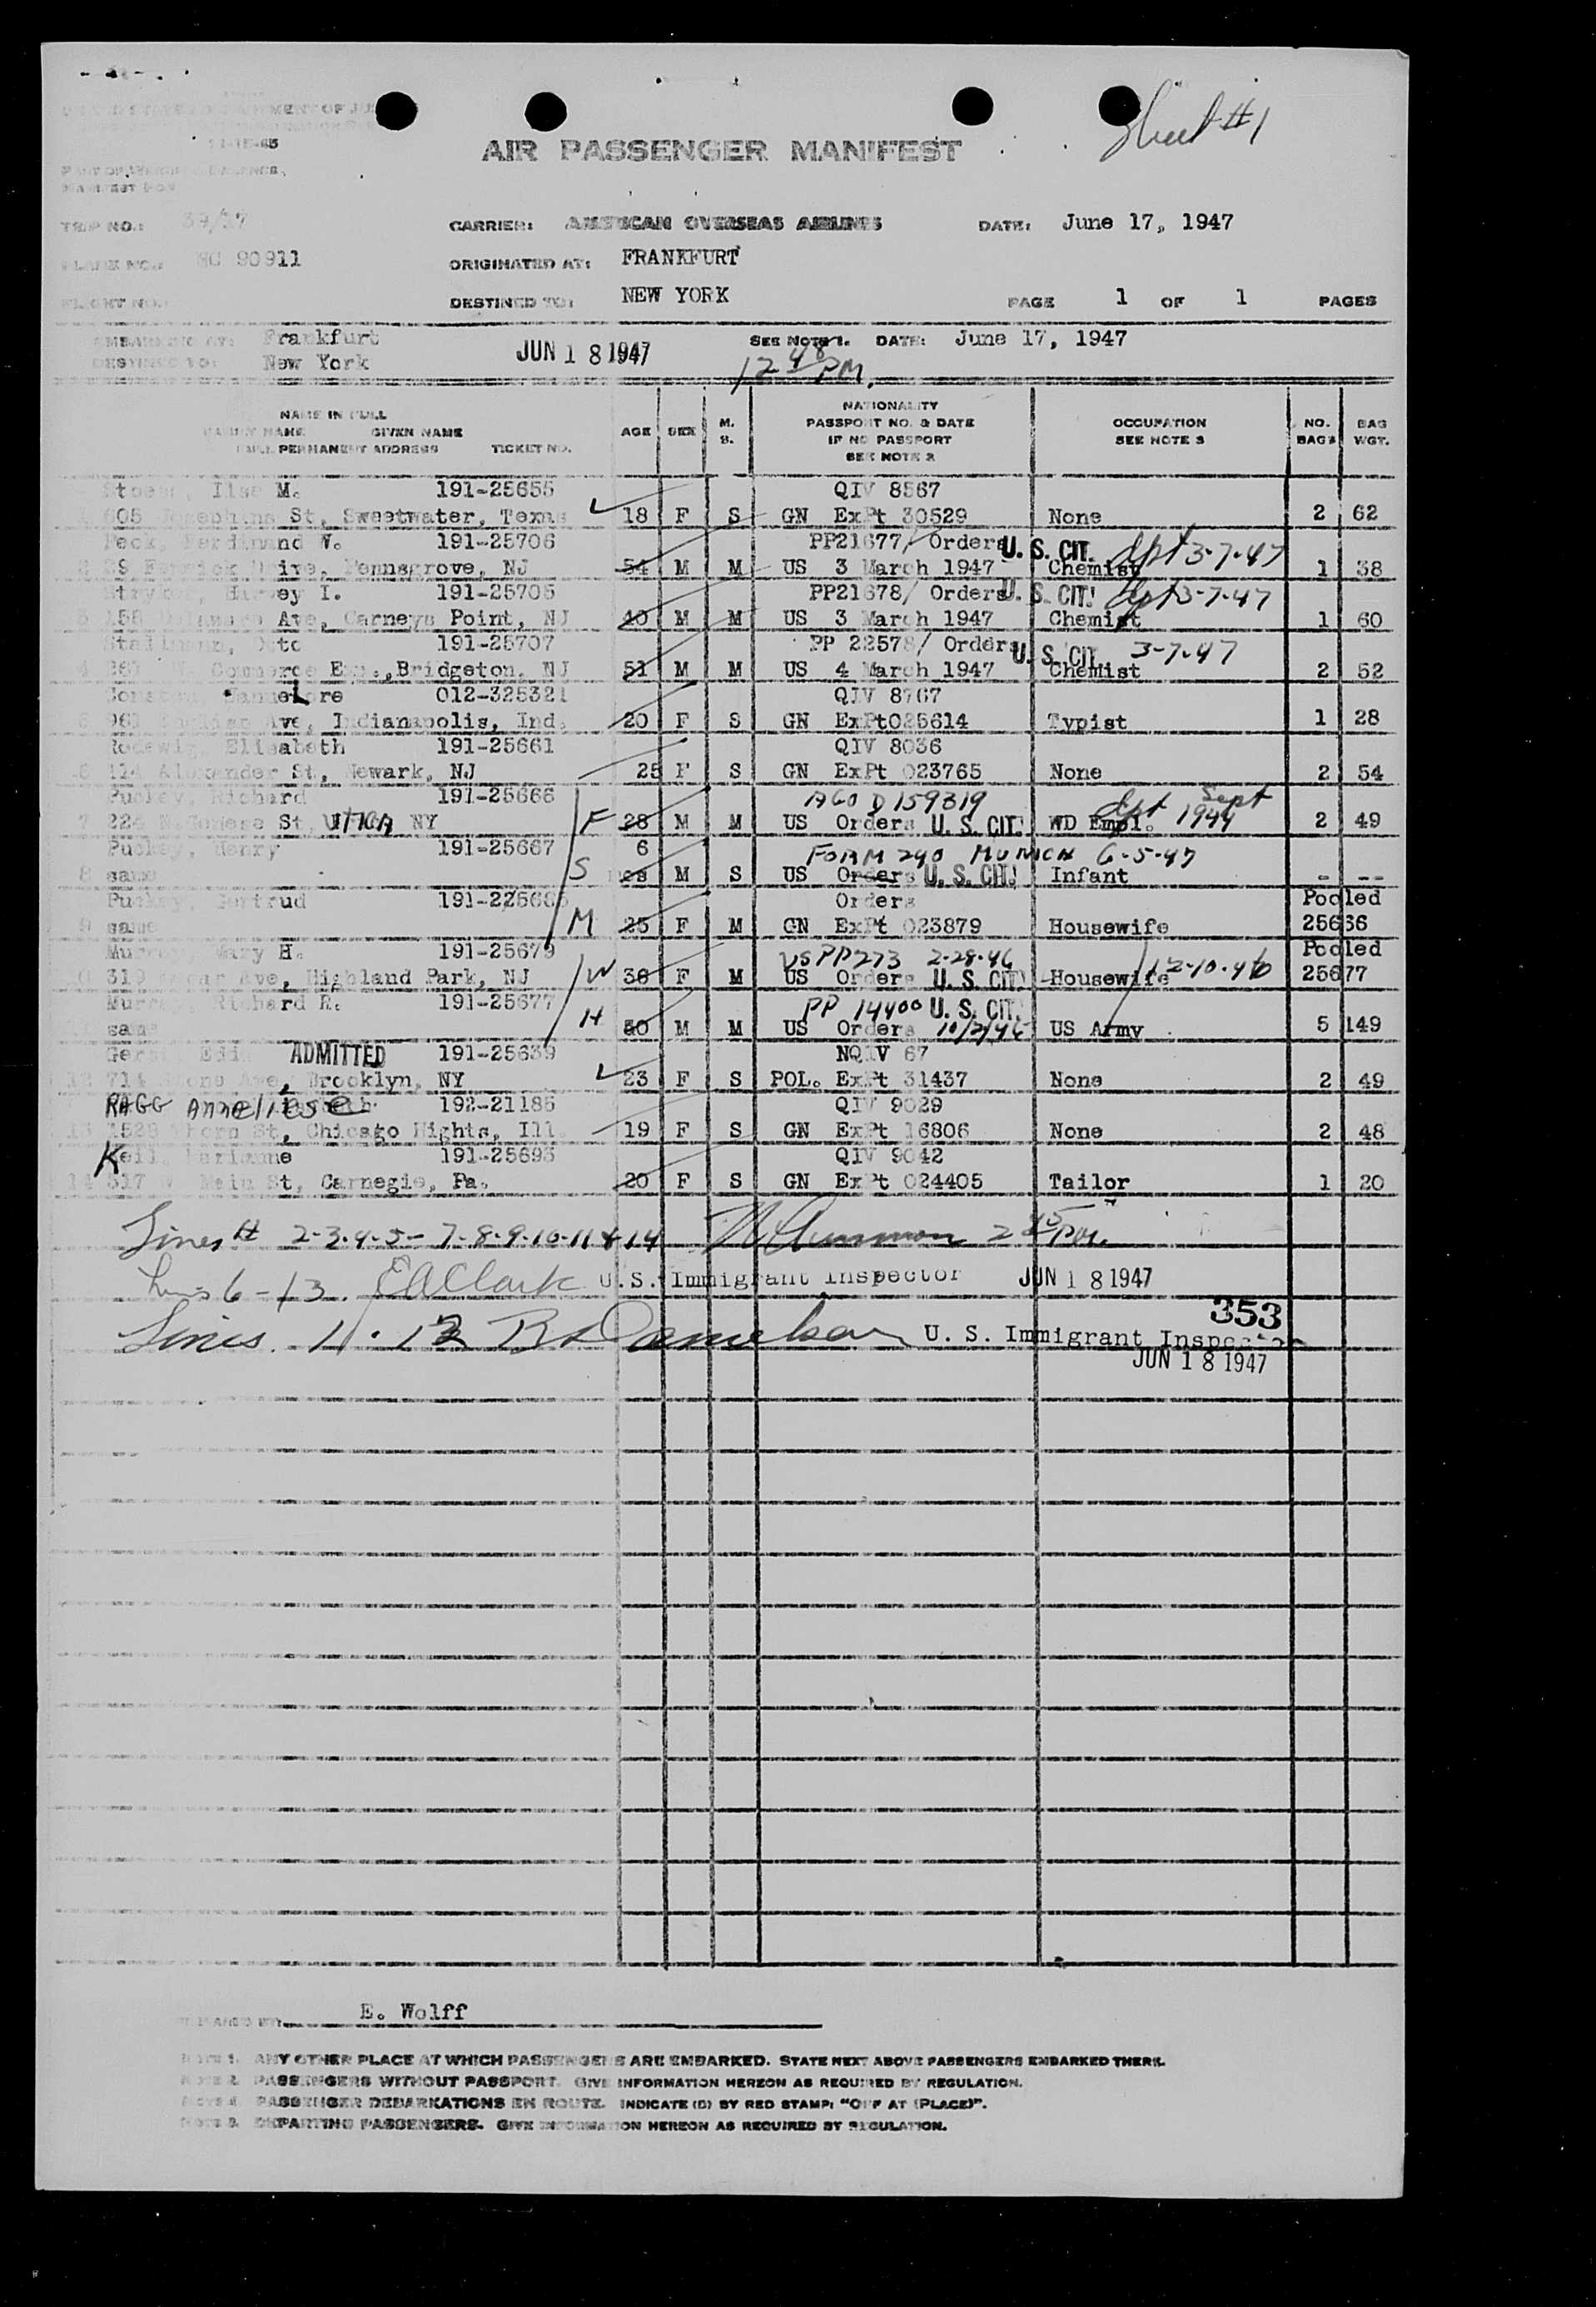 Sheet #1
AIR PASSENGER MANIFEST
TRIP NO.: 39/17 CARRIER: AMERICAN OVERSEAS AIRLINES DATE: June 17, 1947
PLANE NO.: NC 90911 ORIGINATED AT: FRANKFURT
FLIGHT NO. DESTINED TO: NEW YORK PAGE 1 OF 1 PAGES
EMBARKING AT: Frankfurt SEE NOTE 1. DATE: June 17, 1947
DESTINED TO: New York JUN 18 1947 12 48 PM.
NAME IN FULL
FAMILY NAME GIVEN NAME
FULL PERMANENT ADDRESS TICKET NO.
AGE SEX M. S.
NATIONALITY
PASSPORT NO. & DATE
IF NO PASSPORT
SEE NOTE 2
OCCUPATION
SEE NOTE 3
NO. BAGS BAG WGT.
Ilse M. 191-25655 QIV 8567
605 Josephine St, Sweetwater, Texas 18 F S GN ExPt 30529 None 2 62
Peck, Ferdinand W. 191-25706 PP21677/ Orders U. S. CIT. dpt 3-7-47
Drive, Pennsgrove, NJ 54 M M US 3 March 1947 Chemist 1 38
Harvey I. 191-25705 PP21678/ Orders U. S. CIT. dpt 3-7-47
3 158 Delaware Ave, Carneys Point, NJ 40 M M US 3 March 1947 Chemist 1 60
Otto 191-25707 PP 22578/ Orders U. S. CIT. 3-7-47
4 Commerce Bridgeton, NJ 51 M M US 4 March 1947 Chemist 2 52
Hannelore 012-325321 QIV 8767
Ave, Indianapolis, Ind. 20 F S GN ExPt025614 Typist 1 28
Rodewig, Elisabeth 191-25661 QIV 8036
6 124 Alexander St, Newark, NJ 25 F S GN ExPt 023765 None 2 54
Richard 191-25666 AGO D 159319 dpt Sept
7 224 St, UTICA NY F 28 M M US Orders U. S. CIT. WD Empl. 1944 2 49
Henry 191-25667 6 FORM 240 MUNICH 6-5-47
8 same S M S US Orders U. S. CIT. Infant - --
Gertrud Orders Pooled
9 same M 25 F M GN ExPt 023879 Housewife 25666
Mary H. 191-25679 US PP273 2-28-46 Pooled
10 319 Ave, Highland Park, NJ W 36 F M US Orders U. S. CIT. Housewife 12-10-46 25677
Richard R. 191-25677 PP 14400 U. S. CIT.
same H M M US Orders US Army 5 149
ADMITTED 191-25639 NQIV 67
12 714 Stone Ave, Brooklyn, NY 23 F S POL. ExPt 31437 None 2 49
RAGG Anneliese 192-21185 QIV 9029
13 1529 St, Chicago Hights, Ill. 19 F S GN ExPt 16806 None 2 48
Keil, Marianne 191-25693 QIV 9042
14 317 W Main St, Carnegie, Pa. 20 F S GN ExPt 024405 Tailor 1 20
Lines # 2-3-4-5-7-8-9-10-11 & 14 2 45 PM.
Lines 6-13. EAClark U.S. Immigrant Inspector JUN 18 1947
353
Lines. 1. 12 Danielson U. S. Immigrant Inspector
JUN 18 1947
PREPARED BY E. Wolff
NOTE 1. ANY OTHER PLACE AT WHICH PASSENGERS ARE EMBARKED. STATE NEXT ABOVE PASSENGERS EMBARKED THERE.
NOTE 2. PASSENGERS WITHOUT PASSPORT. GIVE INFORMATION HEREON AS REQUIRED BY REGULATION.
NOTE 4. PASSENGER DEBARKATIONS EN ROUTE. INDICATE (D) BY RED STAMP: "OFF AT (PLACE)".
NOTE 3. DEPARTING PASSENGERS. GIVE INFORMATION HEREON AS REQUIRED BY REGULATION.